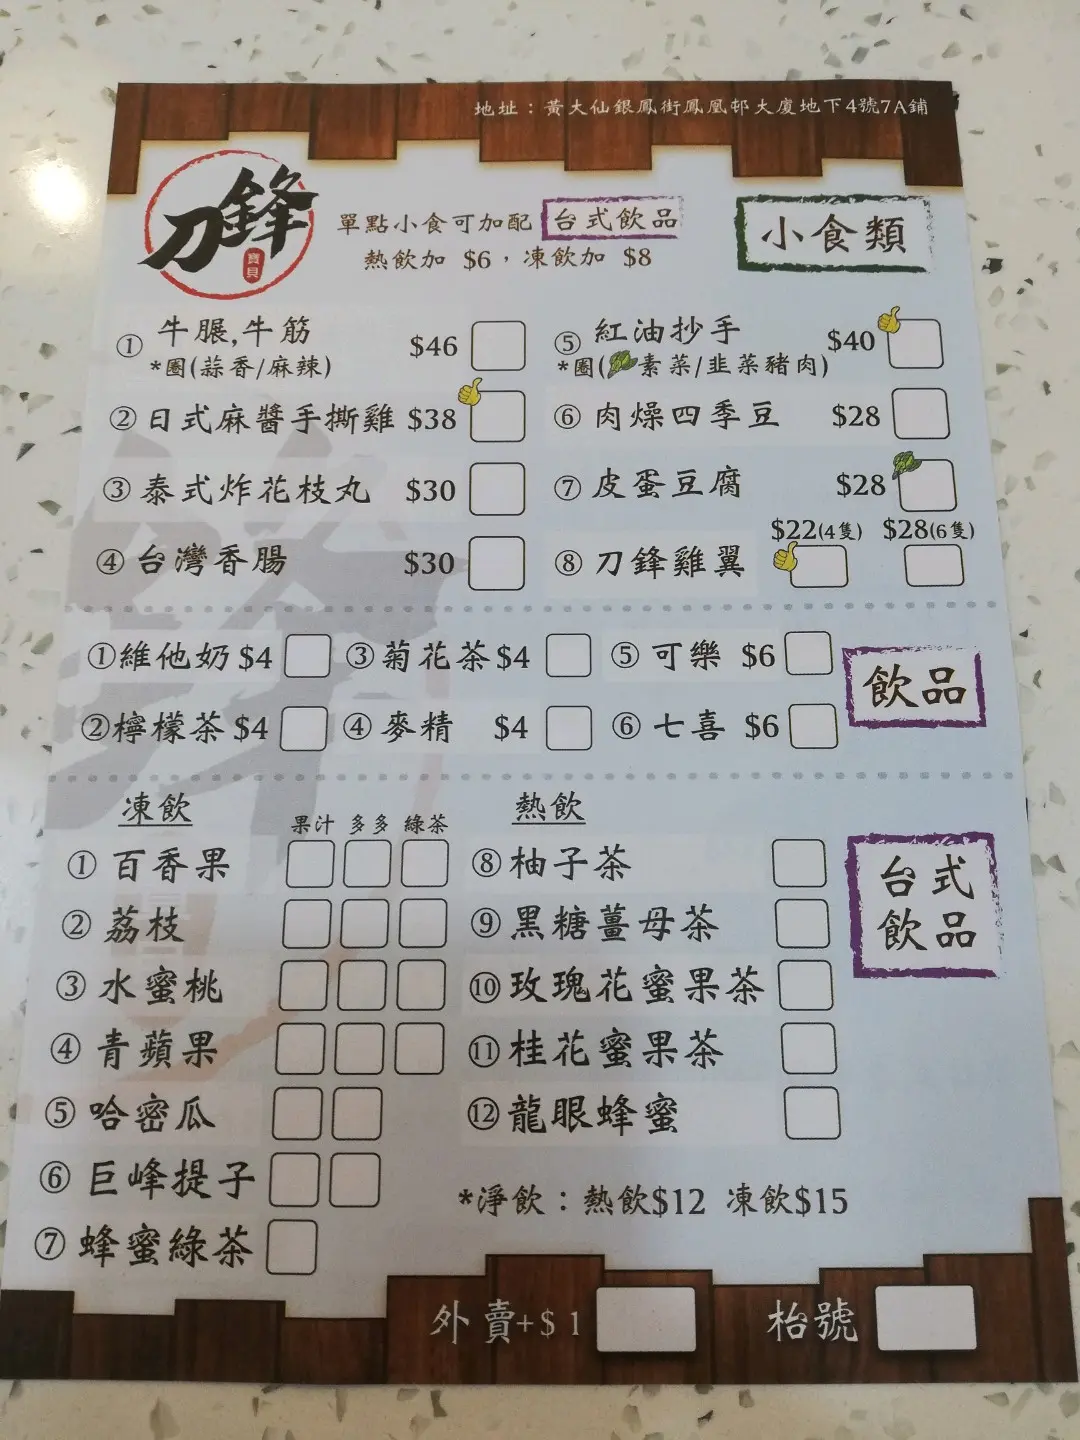 地址：黃大仙銀鳳街鳳凰邨大廈地下4號7A鋪
刀鋒
寶貝
單點小食可加配 台式飲品
熱飲加 $6，凍飲加 $8
小食類
① 牛腱,牛筋 $46
*圈(蒜香/麻辣)
② 日式麻醬手撕雞 $38
③ 泰式炸花枝丸 $30
④ 台灣香腸 $30
⑤ 紅油抄手 $40
*圈(素菜/韭菜豬肉)
⑥ 肉燥四季豆 $28
⑦ 皮蛋豆腐 $28
⑧ 刀鋒雞翼 $22(4隻) $28(6隻)
飲品
①維他奶 $4
②檸檬茶 $4
③菊花茶 $4
④ 麥精 $4
⑤ 可樂 $6
⑥ 七喜 $6
台式
飲品
凍飲
果汁 多多 綠茶
① 百香果
② 荔枝
③ 水蜜桃
④ 青蘋果
⑤ 哈密瓜
⑥ 巨峰提子
⑦ 蜂蜜綠茶
熱飲
⑧ 柚子茶
⑨ 黑糖薑母茶
⑩ 玫瑰花蜜果茶
⑪ 桂花蜜果茶
⑫ 龍眼蜂蜜
*淨飲：熱飲$12 凍飲$15
外賣+$1
枱號